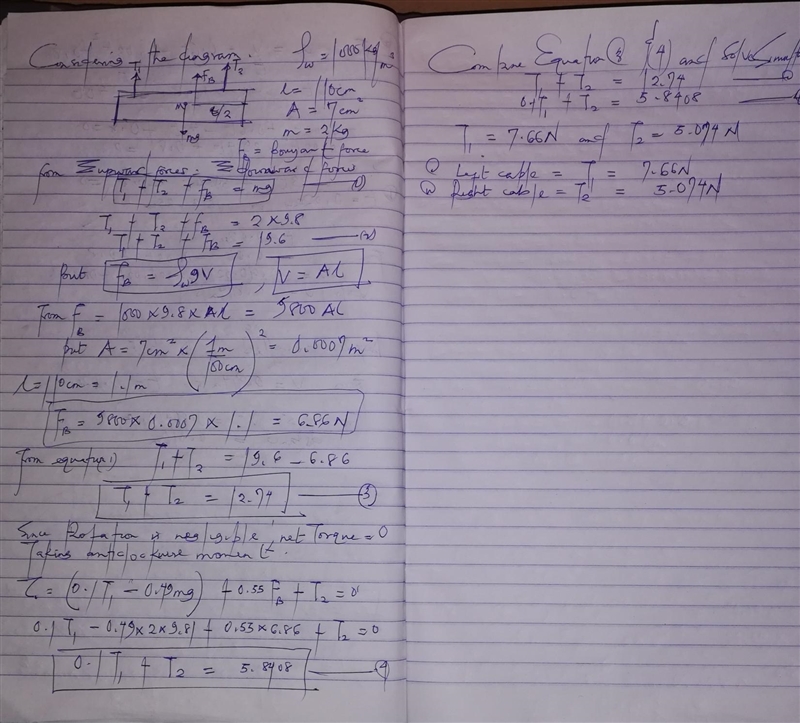 Considering the diagram. ρw = 1000 kg/m³
T1 FB T2
l = 110cm
mg l/2
A = 7cm²
m = 2kg
FB = Bouyant force
from Σupward forces = Σ Downward force
T1 + T2 + FB = mg ——— (1)
T1 + T2 + FB = 2 × 9.8
T1 + T2 + FB = 19.6 ——— (2)
put FB = ρw gV , V = Al
From FB = 1000 × 9.8 × Al = 9800 Al
put A = 7cm² × (1m/100cm)² = 0.0007m²
l = 110cm = 1.1m
FB = 9800 × 0.0007 × 1.1 = 6.86N
From equation 1) T1 + T2 = 19.6 – 6.86
T1 + T2 = 12.74 ——— (3)
Since Rotation is negligible, net Torque = 0
Taking anticlockwise moment.
τ = (0.1T1 – 0.49mg) + 0.55 FB + T2 = 0
0.1T1 – 0.49×2×9.81 + 0.55×6.86 + T2 = 0
0.1T1 + T2 = 5.8408 ——— (4)
Combine Equation (3) & (4) and solve
T1 + T2 = 12.74
0.1T1 + T2 = 5.8408
T1 = 7.66N and T2 = 5.074N
Left cable = T1 = 7.66N
Right cable = T2 = 5.074N